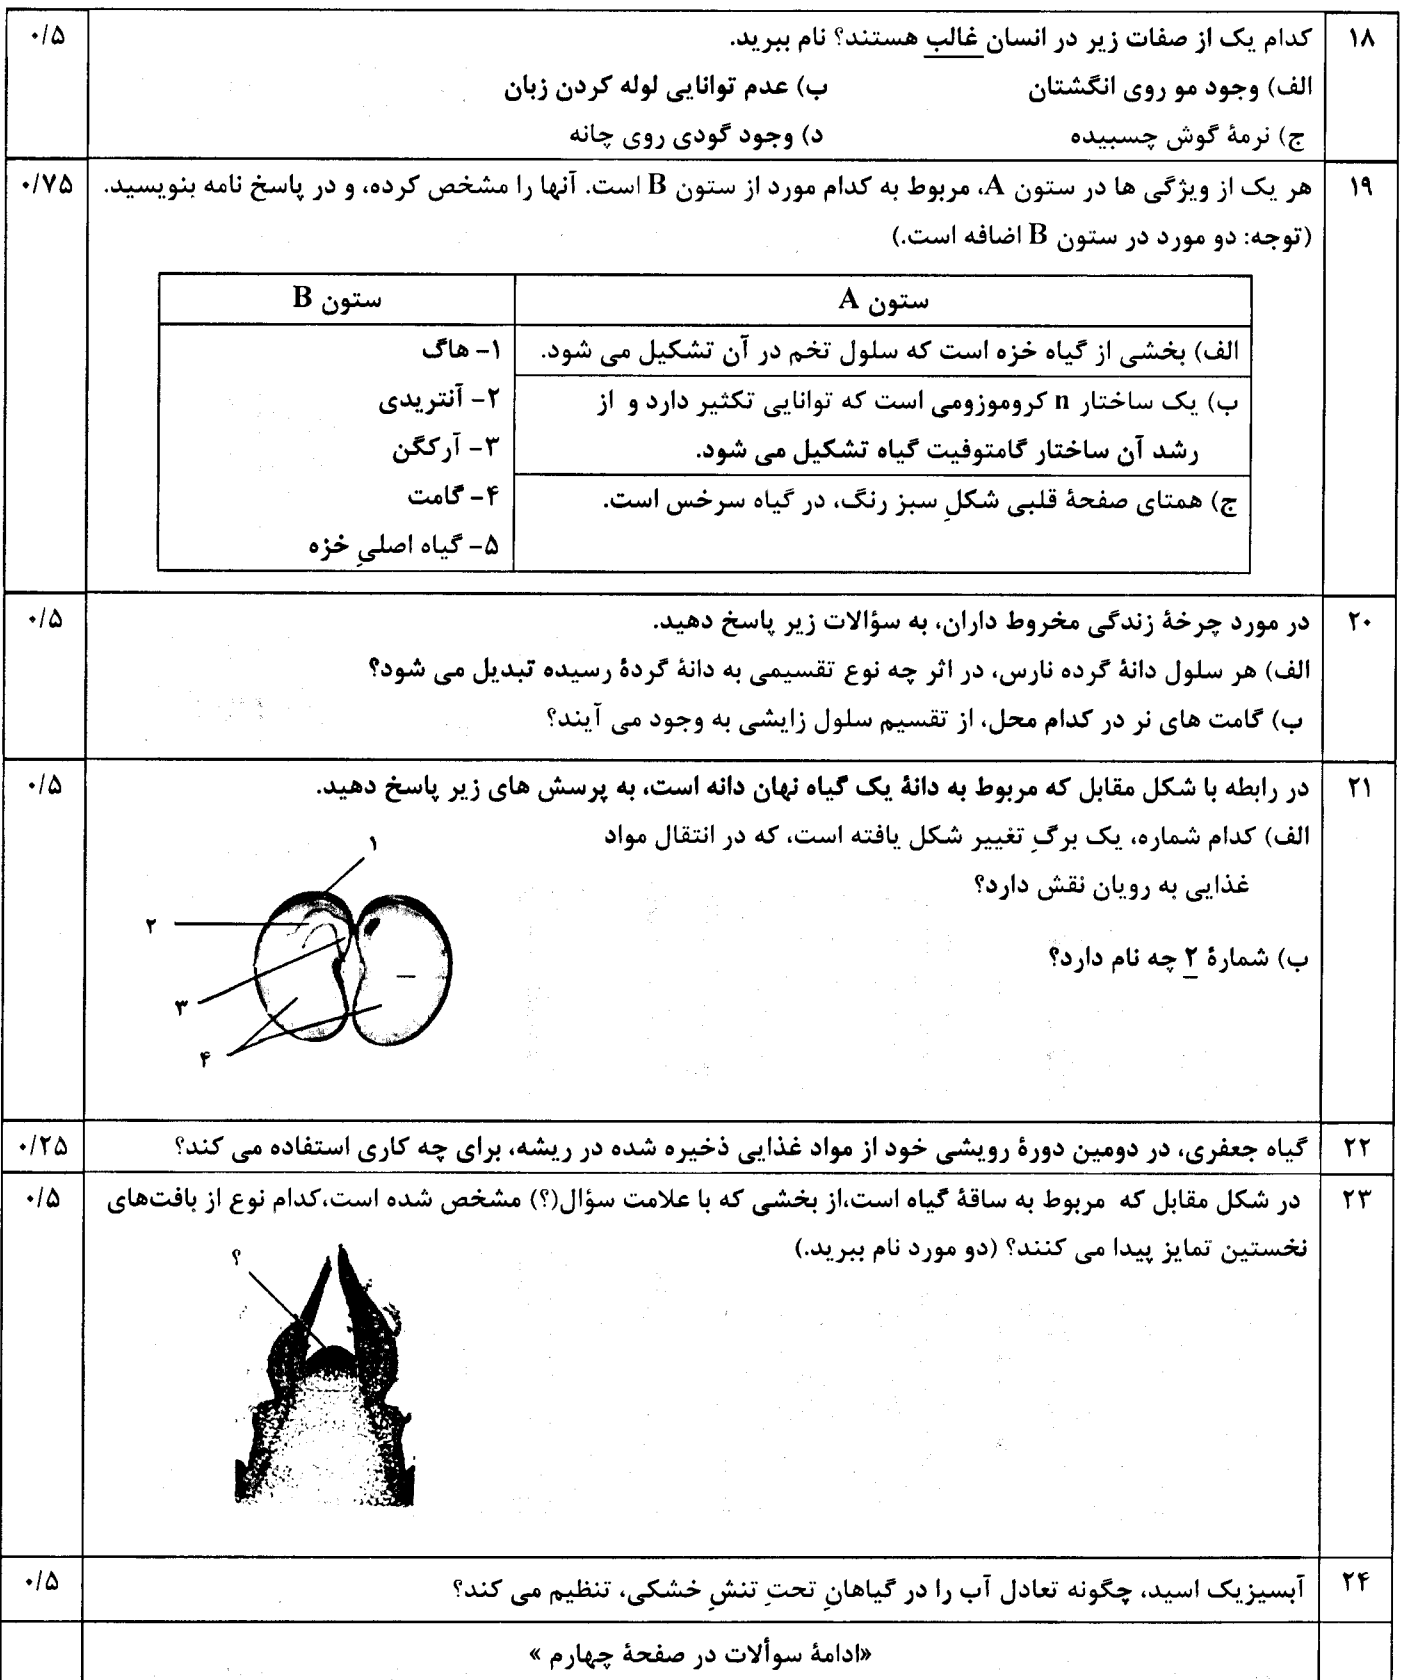 ۱۸ کدام یک از صفات زیر در انسان غالب هستند؟ نام ببرید. ۰/۵
الف) وجود مو روی انگشتان ب) عدم توانایی لوله کردن زبان
ج) نرمۀ گوش چسبیده د) وجود گودی روی چانه
۱۹ هر یک از ویژگی ها در ستون A، مربوط به کدام مورد از ستون B است. آنها را مشخص کرده، و در پاسخ نامه بنویسید. ۰/۷۵
(توجه: دو مورد در ستون B اضافه است.)
ستون A ستون B
الف) بخشی از گیاه خزه است که سلول تخم در آن تشکیل می شود. ۱- هاگ
ب) یک ساختار n کروموزومی است که توانایی تکثیر دارد و از ۲- آنتریدی
رشد آن ساختار گامتوفیت گیاه تشکیل می شود. ۳- آرکگن
ج) همتای صفحۀ قلبی شکلِ سبز رنگ، در گیاه سرخس است. ۴- گامت
۵- گیاه اصلیِ خزه
۲۰ در مورد چرخۀ زندگی مخروط داران، به سؤالات زیر پاسخ دهید. ۰/۵
الف) هر سلول دانۀ گرده نارس، در اثر چه نوع تقسیمی به دانۀ گردۀ رسیده تبدیل می شود؟
ب) گامت های نر در کدام محل، از تقسیم سلول زایشی به وجود می آیند؟
۲۱ در رابطه با شکل مقابل که مربوط به دانۀ یک گیاه نهان دانه است، به پرسش های زیر پاسخ دهید. ۰/۵
الف) کدام شماره، یک برگِ تغییر شکل یافته است، که در انتقال مواد
غذایی به رویان نقش دارد؟
ب) شمارۀ ۲ چه نام دارد؟
۱
۲
۳
۴
۲۲ گیاه جعفری، در دومین دورۀ رویشی خود از مواد غذایی ذخیره شده در ریشه، برای چه کاری استفاده می کند؟ ۰/۲۵
۲۳ در شکل مقابل که مربوط به ساقۀ گیاه است،از بخشی که با علامت سؤال(؟) مشخص شده است،کدام نوع از بافت‌های ۰/۵
نخستین تمایز پیدا می کنند؟ (دو مورد نام ببرید.)
؟
۲۴ آبسیزیک اسید، چگونه تعادل آب را در گیاهانِ تحتِ تنشِ خشکی، تنظیم می کند؟ ۰/۵
«ادامۀ سوألات در صفحۀ چهارم »